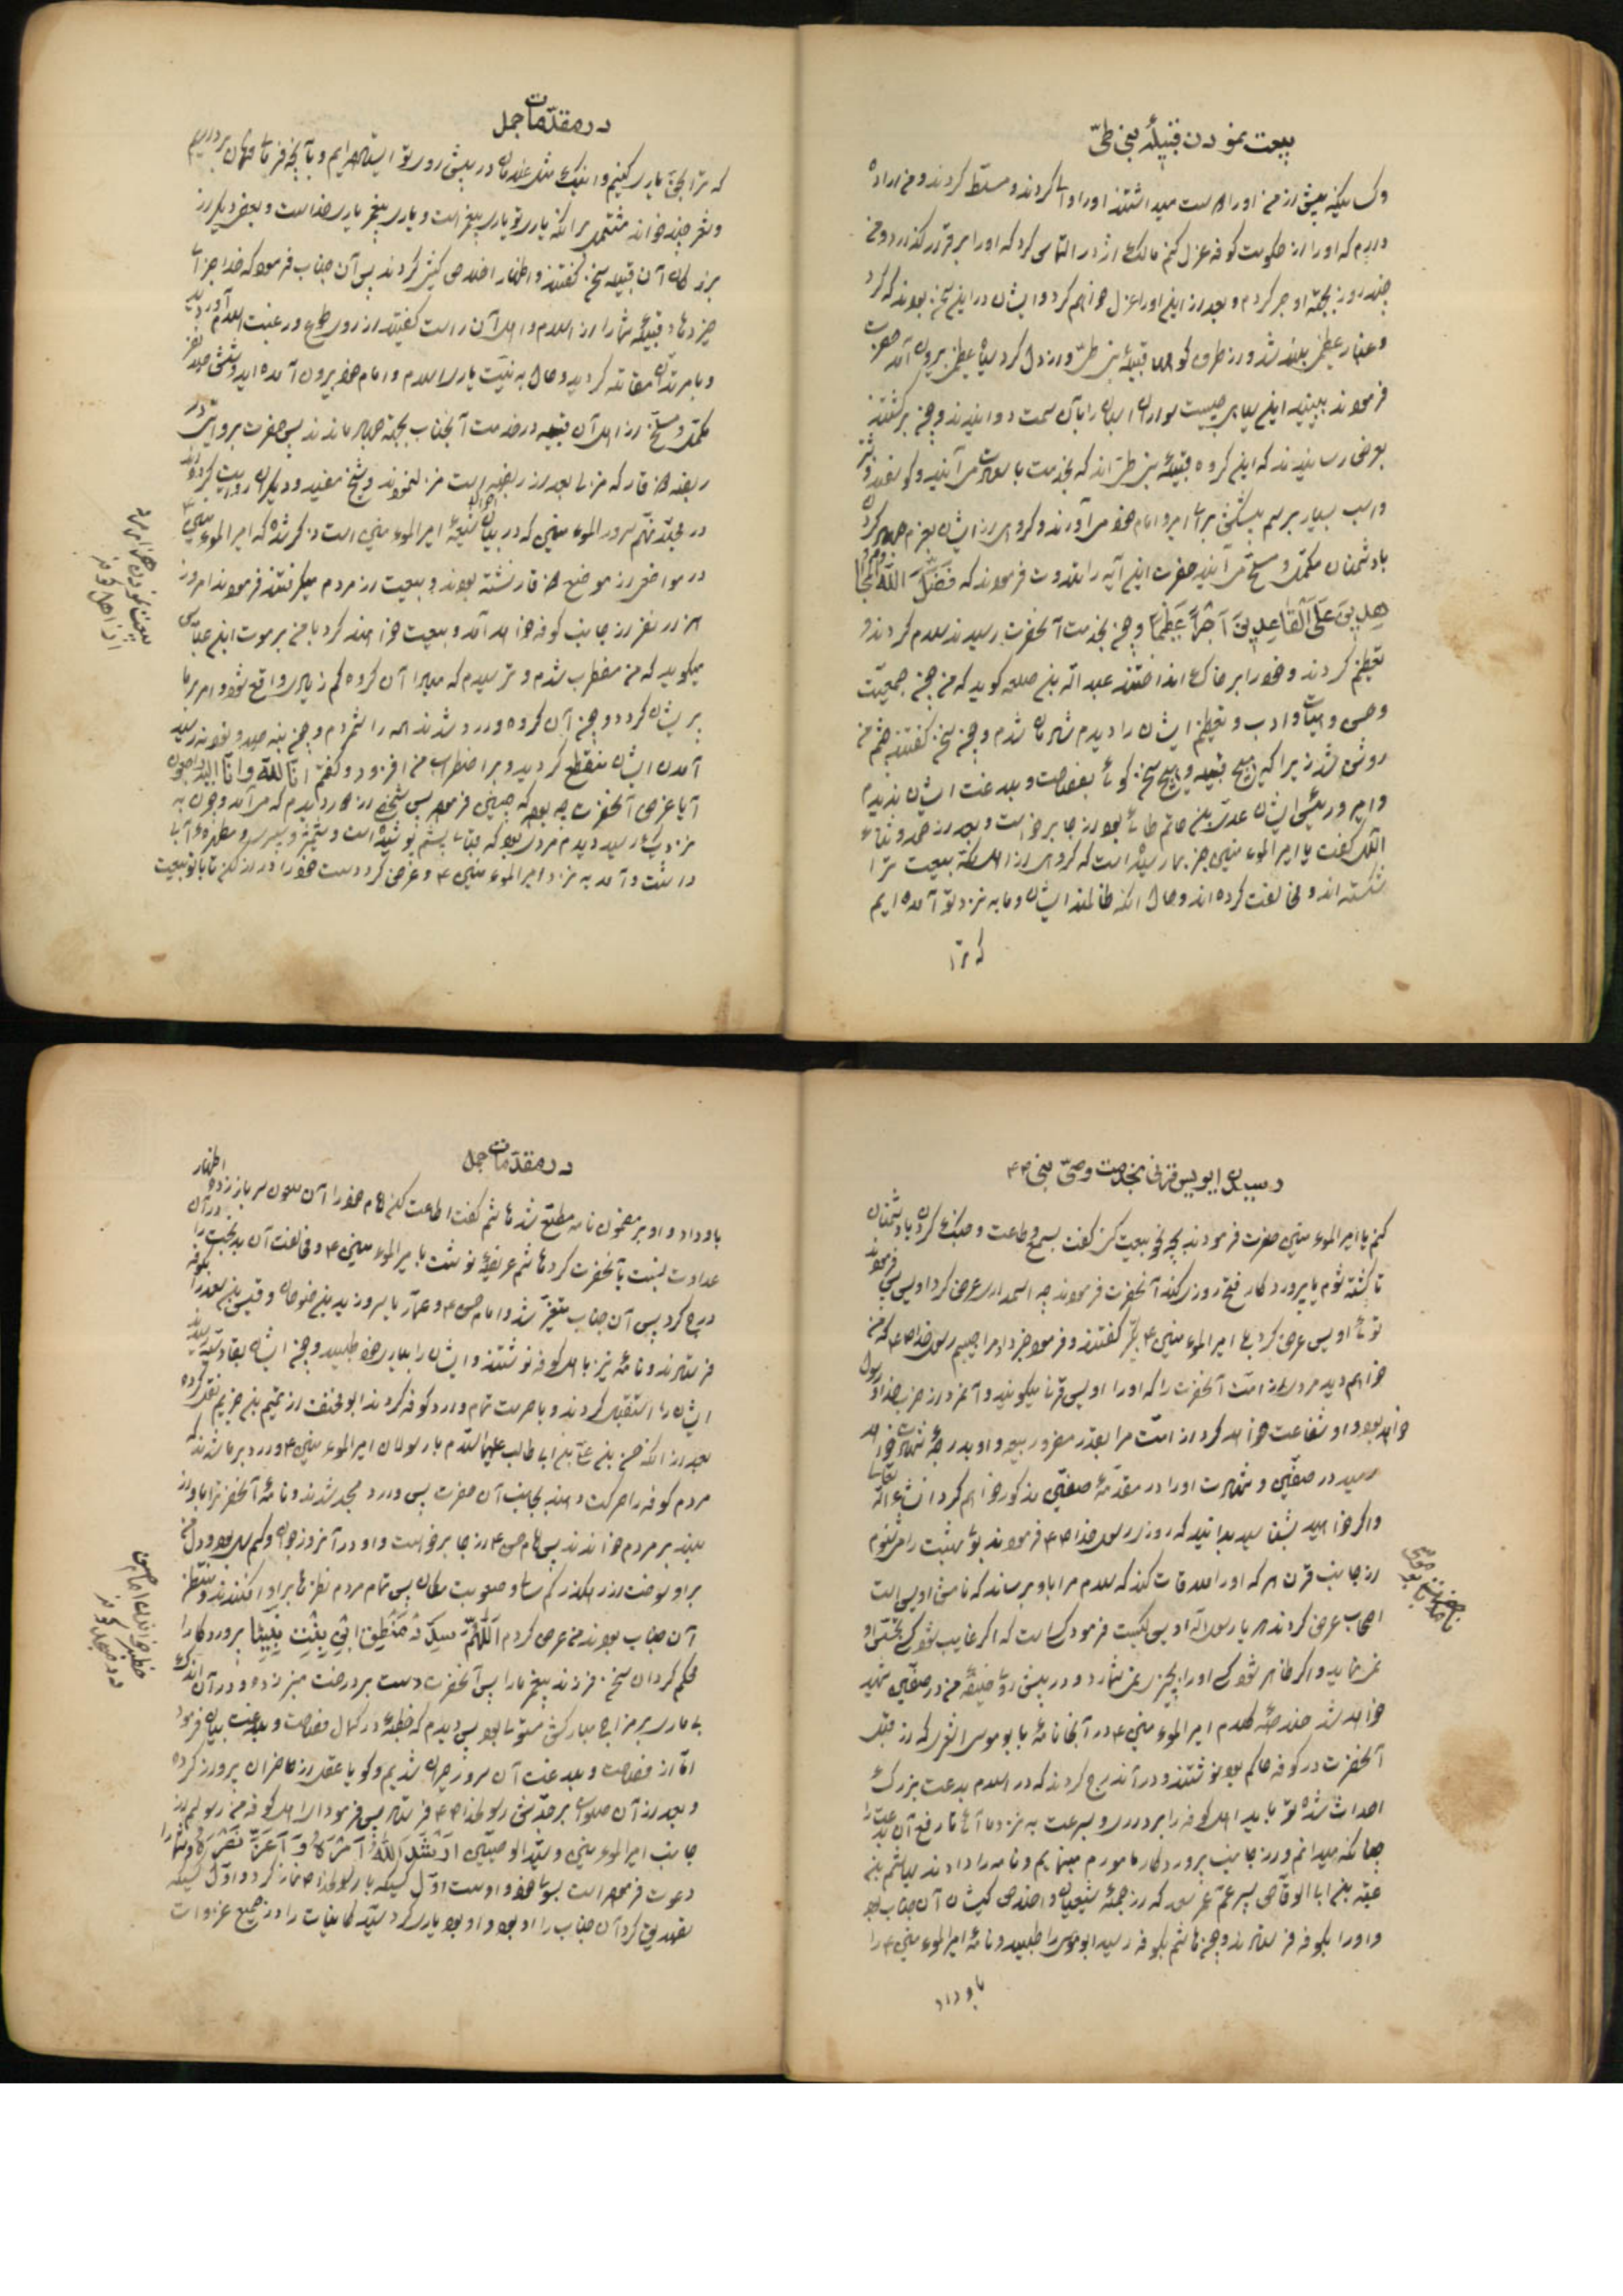 بیعت نمودن قبیلهٔ بنی طیّ
وکسانیکه پیش از من او را
داریم که او را از حکومت کوفه عزل کنم مالک اشتر التماس کرد که او را برقرار گذارد و من
چند روز بجهة او جبر کردم و بعد از این او را عزل خواهم کرد و ایشان در این سخن بودند که گرد
و غبار عظیمی بلند شد و از طرف کوه‌های قبیلهٔ بنی طیّ سپاه عظیمی بیرون آمد حضرت
فرمودند ببینید این سپاه چیست سواران اسبان را بآن سمت دوانیدند و چون برگشتند
بعرض رسانیدند که این گروه قبیلهٔ بنی طیّ‌اند که بخدمت با سعادت می‌آیند و گوسفند و شتر
و اسب بسیار برسم پیشکش برای امیر و امام خود می‌آورند و گروهی از ایشان بعزم جهاد کردن
با دشمنان مکمّل و مسلّح می‌آیند حضرت این آیه را تلاوت فرمودند که فَضَّلَ اللّٰهُ الْمُجا
هِدِینَ عَلَی الْقاعِدِینَ اَجْراً عَظِیماً و چون بخدمت آنحضرت رسیدند سلام کردند و
تعظیم کردند و خود را بر خاک انداختند عبداللّه بن خلیفه گوید که من چون جمعیّت
و حسن و هیئات و ادب و تعظیم ایشان را دیدم شادمان شدم و چون سخن گفتند چشم من
روشن شد زیرا که هیچ قبیله و هیچ سخن گوئی بفصاحت و بلاغت ایشان ندیدم
و امیر و رئیس ایشان عدیّ بن حاتم طائی بود از جا برخاست و بعد از حمد و ثنای
الٓهی گفت یا امیر المؤمنین خبر بما رسیده است که گروهی از اهل مکّه بیعت ترا
شکسته‌اند و مخالفت کرده‌اند و حال آنکه ظالمند ایشان و ما به نزد تو آمده‌ایم
که ترا
در مقدّمات جمل
که ترا بحق یاری کنیم و اینک مثل غلامان در پیش روی تو ایستاده‌ایم و بآنچه فرمائی فرمان برداریم
و شعر چند خواند مشتمل بر آنکه یاری تو یاری پیغمبر است و یاری پیغمبر یاری خداست و بعضی دیگر از
بزرگان آن قبیله سخن گفتند و اظهار اخلاص کیش کردند پس آن جناب فرمود که خدا جزای
خیر دهاد قبیلهٔ شما را از اسلام و اهل آن راست گفتید از روی طوع و رغبت اسلام آوردید
و با مرتدّان مقاتله کردید و حال به نیّت یاری اسلام و امام خود بیرون آمده‌اید و ششصد نفر
مکمّل و مسلّح از اهل آن قبیله در خدمت آنجناب بجهة جهاد ماندند پس حضرت بر وایتی در
ربذه و ذی قار که منزلی بعد از ربذه است منزل نمودند و شیخ مفید و دیگران روایت کرده‌اند
در مجلّد نهم سرور المؤمنین که در بیان احوال شیعهٔ امیر المؤمنین است ذکر شده که امیر المؤمنین ع
در مواضعی از موضع ذی قار نشسته بودند و بیعت از مردم میگرفتند فرمودند امروز
هزار نفر از جانب کوفه خواهد آمد و بیعت خواهند کرد با من بر موت ابن عبّاس
میگوید که من مضطرب شدم و ترسیدم که مبادا از آن گروه کم و زیادی واقع شود و امر بر ما
پریشان گردد و چون آن گروه وارد شدند همه را شمردم و چون بنهصد و نود و نه رسید
آمدن ایشان منقطع گردید و بر اضطراب من افزود و گفتم انّا للّه و انّا الیه راجعون
آیا غرض آنحضرت چه بود که چنین فرمود پس شخصی از دور دیدم که می‌آمد و چون به
نزدیک رسید دیدم مردی بود که قبای پشم پوشیده است و شمشیر و سپری و مطهرهٔ آب با
داشت و آمد به نزد امیر المؤمنین ع و عرض کرد دست خود را دراز کن تا با تو بیعت
بیعت نمودن هزار مرد
از اهل کوفه
رسیدن اویس قرنی بخدمت وصیّ نبی ص ع
کنم یا امیر المؤمنین حضرت فرمودند بچه نحو بیعت کنی گفت بسمع و طاعت و جنگ کردن با دشمنان
تا کشته شوم یا پروردگار فتح روزی کند آنحضرت فرمودند چه اسم داری عرض کرد اویس پس فرمودند
توئی اویس عرض کرد بلی امیر المؤمنین ع تکبیر گفتند و فرمود خبر داد مرا حبیبم رسول خدا ص که من
خواهم دید مردی از امّت آنحضرت را که او را اویس قرنی میگویند و آنمرد از حزب خدا و رسول
خواهد بود و او شفاعت خواهد کرد از امّت مرا بقدر مضر و ربیعه و او بدرجهٔ شهادت خواهد
رسید در صفّین و شهادت او را در مقدّمهٔ صفّین مذکور خواهم کرد انشاء اللّه تعالی
و اگر خواهید بشناسید بدانید که روزی رسول خدا ص فرمودند بوی بهشت را می‌شنوم
از جانب قرن هر که او را ملاقات کند که سلام مرا باو برساند که نامش اویس است
اصحاب عرض کردند یا رسول اللّه اویس کیست فرمود کسیست که اگر غایب شود کسی تجسّس او
نمی‌نماید و اگر ظاهر شود کسی او را بچیزی نمی‌شمارد و در پیش روی خلیفهٔ من در صفّین شهید
خواهد شد خلاصهٔ کلام امیر المؤمنین ع در آنجا نامهٔ بابو موسی اشعری که از قبل
آنحضرت در کوفه حاکم بود نوشتند و در آن درج کردند که در اسلام بدعت بزرگ
احداث شده تو باید اهل کوفه را برداری و بسرعت به نزد ما آئی تا رفع آن بدعت را
چنانکه میدانم و از جانب پروردگار مأمورم بنمایم و نامه را دادند بهاشم بن
عتبة بن ابی الوقّاص پسر عمّ عمر سعد که از جملهٔ شیعیان و اخلاص کیشان آن جناب بود
و او را بکوفه فرستادند و چون هاشم بکوفه رسید ابو موسی را طلبید و نامهٔ امیر المؤمنین ع را
باو داد
در مقدّمات جمل
باو داد و او بر مضمون نامه مطلع شد هاشم گفت اطاعت کن امام خود را آن ملعون سر باز زد و اظهار
عداوت نسبت بآنحضرت کرد هاشم عریضهٔ نوشت بامیر المؤمنین ع و مخالفت آن بدبخت را در آن
درج کرد پس آن جناب متغیّر شد و امام حسن ع و عمّار یاسر و زید بن صوحان و قیس بن سعد را بکوفه
فرستادند و نامهٔ نیز باهل کوفه نوشتند و ایشان را بیاری خود طلبید و چون ایشان بقادسیّه رسیدند
ایشان را استقبال کردند و با حرمت تمام وارد کوفه کردند ابو مخنف از تمیم بن حزیم نقل کرده
بعد از آنکه حسن بن علیّ بن ابی طالب علیهما السّلام با رسولان امیر المؤمنین ع وارد بر ما شدند که
مردم کوفه را حرکت دهند بجانب آن حضرت پس وارد مسجد شدند و نامهٔ آنحضرت را باواز
بلند بر مردم خواندند پس امام حسن ع از جا برخاست و او در آنروز جوان و کم سال بود و دل من
بر او سوخت از رهگذر کم سالی و صعوبت مکان پس تمام مردم نظرها بر او افکندند و منتظر
آن جناب بودند من عرض کردم اَللّٰهُمَّ سَدِّدْ مَنْطِقَ ابْنِ بِنْتِ نَبِیِّنا پروردگارا
محکم گردان سخن فرزند پیغمبر ما را پس آنحضرت دست بر درخت منبر زده و در آن اندک
بیماری بر مزاج مبارکش مستولی بود پس دیدم که خطبهٔ در کمال فصاحت و بلاغت بیان فرمود
امّا از فصاحت و بلاغت آن سرور حیران شدیم و گویا عقل از حاضران پرواز کرده
و بعد از آن صلوات بر جدّش رسولخدا ص فرستاد پس فرمود ای اهل کوفه من رسولم از
جانب امیر المؤمنین و سیّد الوصیّین اَرْشَدَ اللّٰهُ اَمْرَهُ وَ اَعَزَّ نَصْرَهُ و شما را
دعوت فرموده است بسوی خود و اوست اوّل کسیکه با رسولخدا ص نماز کرد و اوّل کسیکه
تصدیق کرد آن جناب را او بود و او بود یاری کرد سیّد کاینات را در جمیع غزوات
خطبه خواندن امام حسن
در مسجد کوفه